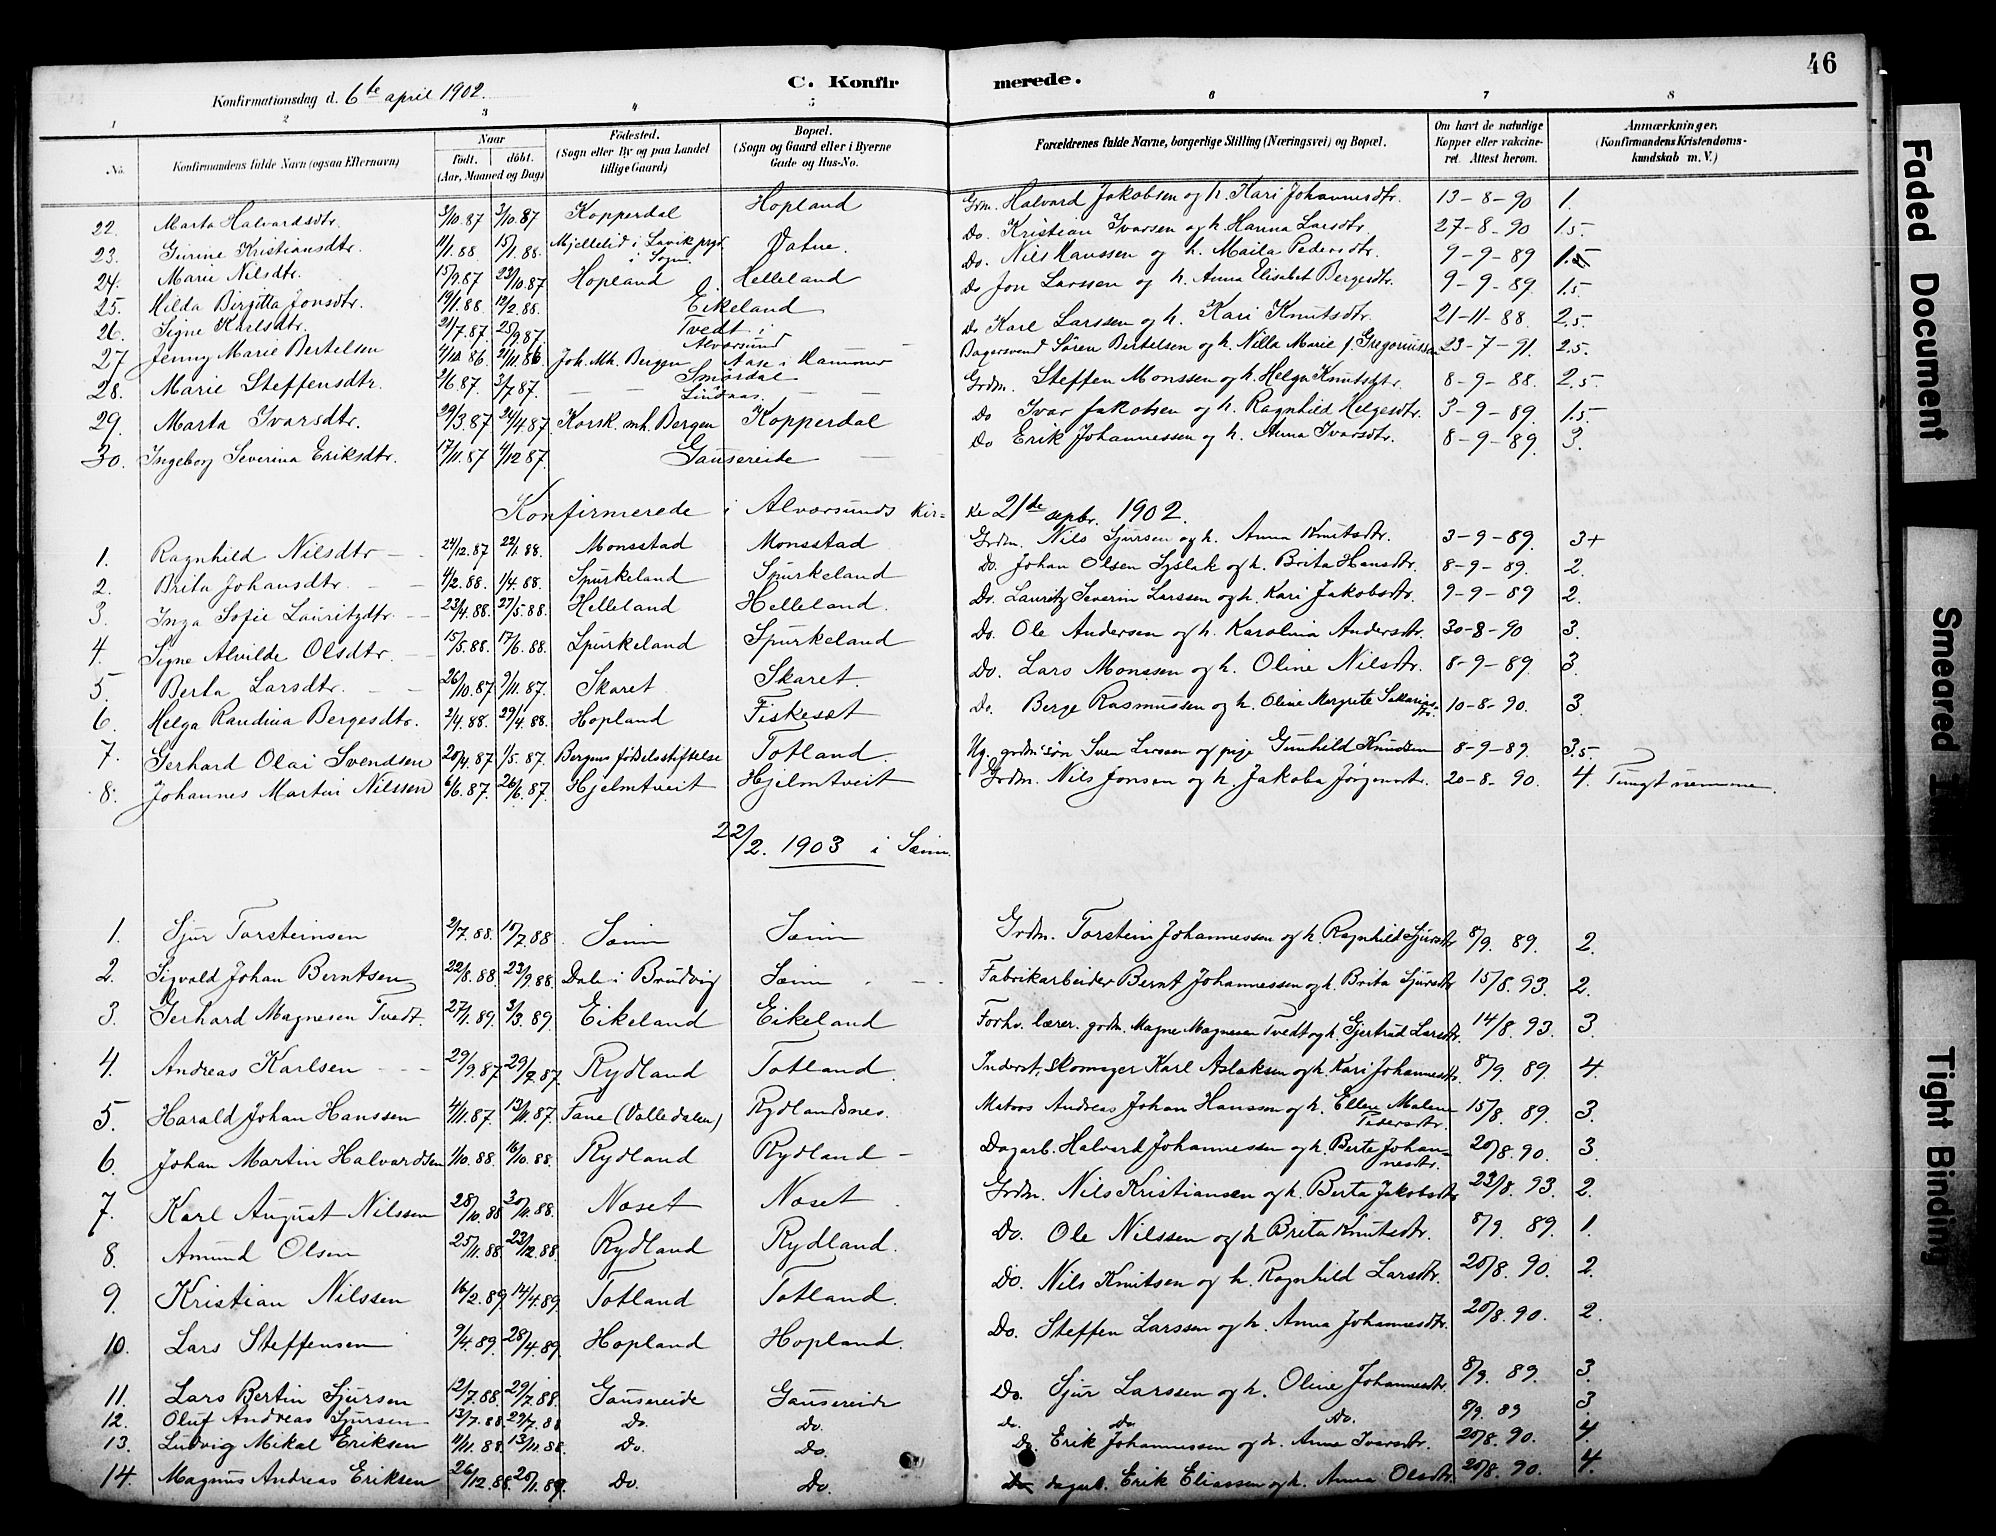 46
C. Konfirmerede.
Konfirmationsdag d. 6te april 1902.
1 2 3 4 5 6 7 8
No. Konfirmandens fulde Navn (ogsaa Efternavn) Naar født. døbt. (Aar, Maaned og Dag) Fødested. (Sogn eller By og paa Landet tillige Gaard) Bopæl. (Sogn og Gaard eller i Byerne Gade og Hus-No. Forældrenes fulde Navne, borgerlige Stilling (Næringsvei) og Bopæl. Om havt de naturlige Kopper eller vakcineret. Attest herom. Anmærkninger. (Konfirmandens Kristendomskundskab m. V.)
22. Marta Halvardsdtr. 3/10.87 3/10.87 Kopperdal Hopland Grdm. Halvard Jakobsen og h. Kari Johannesdtr. 13-8-90 1.
23. Gurine Kristiansdtr. 11/1.88 15/1.88. Mjellelid i Lavik prgd. i Sogn Vatne. Do. Kristian Ivarsen og h. Hanna Larsdtr. 27-8-90 1.5
24. Marie Nilsdtr. 15/9.87 23/10.87 Hopland Helleland Do. Nils Hanssen og h. Maila Pedersdtr. 9-9-89 1.5
25. Helda Birgitta Jonsdtr. 19/1.88 12/2.88. Eikeland Do Jon Larssen og h. Anna Elisabet Bergesdtr. 9-9-89. 1.5.
26. Signe Karlsdtr. 21/7.87 25/9.87 Tvedt i Alversund Do Karl Larssen og h. Kari Knutsdtr. 21-11-88. 2.5.
27. Jenny Marie Bertelsen 4/10 86 21/11.86 Joh. Mh. Bergen Aase i Hammer Bagersvend Søren Bertelsen og h. Nilla Marie f. Gregoriussen 23-7-91. 2.5.
28. Marie Steffensdtr. 2/6.87 3/7.87. Smørdal Lindaas. Grdm. Steffen Monssen og h. Helga Knutsdtr. 8-9-88. 2.5.
29. Marta Ivarsdtr. 29/3.87 24/4.87 Korsk. mh. Bergen Kopperdal Do Ivar Jakobsen og h. Ragnhild Helgesdtr. 3-9-89. 1.5
30. Ingeborg Severina Eriksdtr. 17/11.87 4/12 87. Gausereide Do Erik Johannessen og h. Anna Ivarsdtr. 8-9-89. 3.
Konfirmerede i Alversunds Kirke 21de septbr. 1902.
1. Ragnhild Nilsdtr 24/12.87 22/1.88. Monsstad Monsstad Grdm. Nils Sjursen og h. Anna Knutsdtr. 3-9-89. 3+
2. Brita Johansdtr. 4/2.88. 1/4.88. Spurkeland Spurkeland Do. Johan Olsen Syslak og h. Brita Hansdtr. 8-9-89. 2.
3. Inga Sofie Lauritzdtr. 23/4.88. 27/5.88. Helleland Helleland. Do. Lauritz Severin Larssen og h. Kari Jakobsdtr. 9-9-89 2.
4. Signe Alvilde Olsdtr. 15/5.88. 17/6.88. Spurkeland Spurkeland Do. Ole Andersen og h. Karolina Andersdtr. 30-8-90 3.
5. Berta Larsdtr. 26/10.87 9/11.87. Skaret Skaret. Do. Lars Monssen og h. Oline Nilsdtr. 8-9-89. 3.
6. Helga Randina Bergesdtr. 2/4.88. 29/4.88. Hopland Fiskeset Do. Berge Rasmussen og h. Oline Margrete Sakariasdtr. 10-8-90. 3.
7. Gerhard Olai Svendsen 20/4.87 1/5.87. Bergens fødselsstiftelse Totland. Ug. grdm.søn Sven Larsen og pige Gunhild Knudsen 8-9-89. 3.5
8. Johannes Martin Nilssen 6/6.87. 26/6.87. Hjelmtveit Hjelmtveit Grdm. Nils Jonsen og h. Jakoba Jørgensdtr. 20-8-90. 4. Tungt nemme.
22/2. 1903 i Seim.
1. Sjur Torsteinsen 2/7.88. 15/7.88 Seim Seim Grdm. Torstein Johannessen og h. Ragnhild Sjursdtr 8/9. 89. 2.
2. Sigvald Johan Berntsen 22/8.88 23/9.88. Dale i Bruvig Seim Fabrikarbeider Bernt Johannessen og h. Brita Sjursdtr 15/8.93. 2.
3. Gerhard Magnesen Tvedt. 27/1.89. 3/3.89. Eikeland Eikeland Forhv. lærer. grdm. Magne Magnesen Tvedt og h. Gjertrud Larsdtr. 14/8.93. 3.
4. Andreas Karlsen 29/9.87. Rydland Totland. Inderst, skomager Karl Aslaksen og h. Kari Johannesdtr. 8/9. 89. 4.
5. Harald Johan Hanssen 4/11.87. 13/11.87. Fane (Valledalen) Rydlandsnes. Matros Andreas Johan Hanssen og h. Ellen Malene Pedersdtr. 15/8. 89. 3.
6. Johan Martin Halvardsen 1/10.88. 16/10.88. Rydland Rydland Dagarb. Halvard Johannessen og h. Berta Johannesdtr. 20/8.90. 3.
7. Karl August Nilssen 28/10.88 30/11.88. Noset Noset Grdm. Nils Kristiansen og h. Berta Jakobsdtr 23/8. 93. 2.
8. Amund Olsen 25/11.88. 23/12.88. Rydland Rydland. Do. Ole Nilssen og h. Brita Knutsdtr. 8/9. 89. 1.
9. Kristian Nilssen 16/2.89. 14/4.89. Totland Totland. Do. Nils Knutsen og h. Ragnhild Larsdtr. 20/8. 90. 2.
10. Lars Steffensen 9/4.89. 28/4.89. Hopland Hopland. Do. Steffen Larssen og h. Anna Johannesdtr. 20/8.90. 2.
11. Lars Bertin Sjursen 12/7.88. 29/7.88. Gausereide Gausereide Do. Sjur Larssen og h. Oline Johannesdtr. 8/9. 89. 3.
12. Oluf Andreas Sjursen 13/7.88 29/7.88 Do. Do. Do. Do Do. 8/9. 89 3.
13. Ludvig Mikal Eriksen 11/11.88. 13/11.88. Do. Do. Do. Erik Johannessen og h. Anna Ivarsdtr. 20/8.90. 4.
14. Magnus Andreas Eriksen 26/12.88. 20/1.89. Do. Do. Do dagarb. Erik Eliassen og h. Anna Olsdtr. 20/8.90. 4.
Faded Document
Smeared
Tight Binding